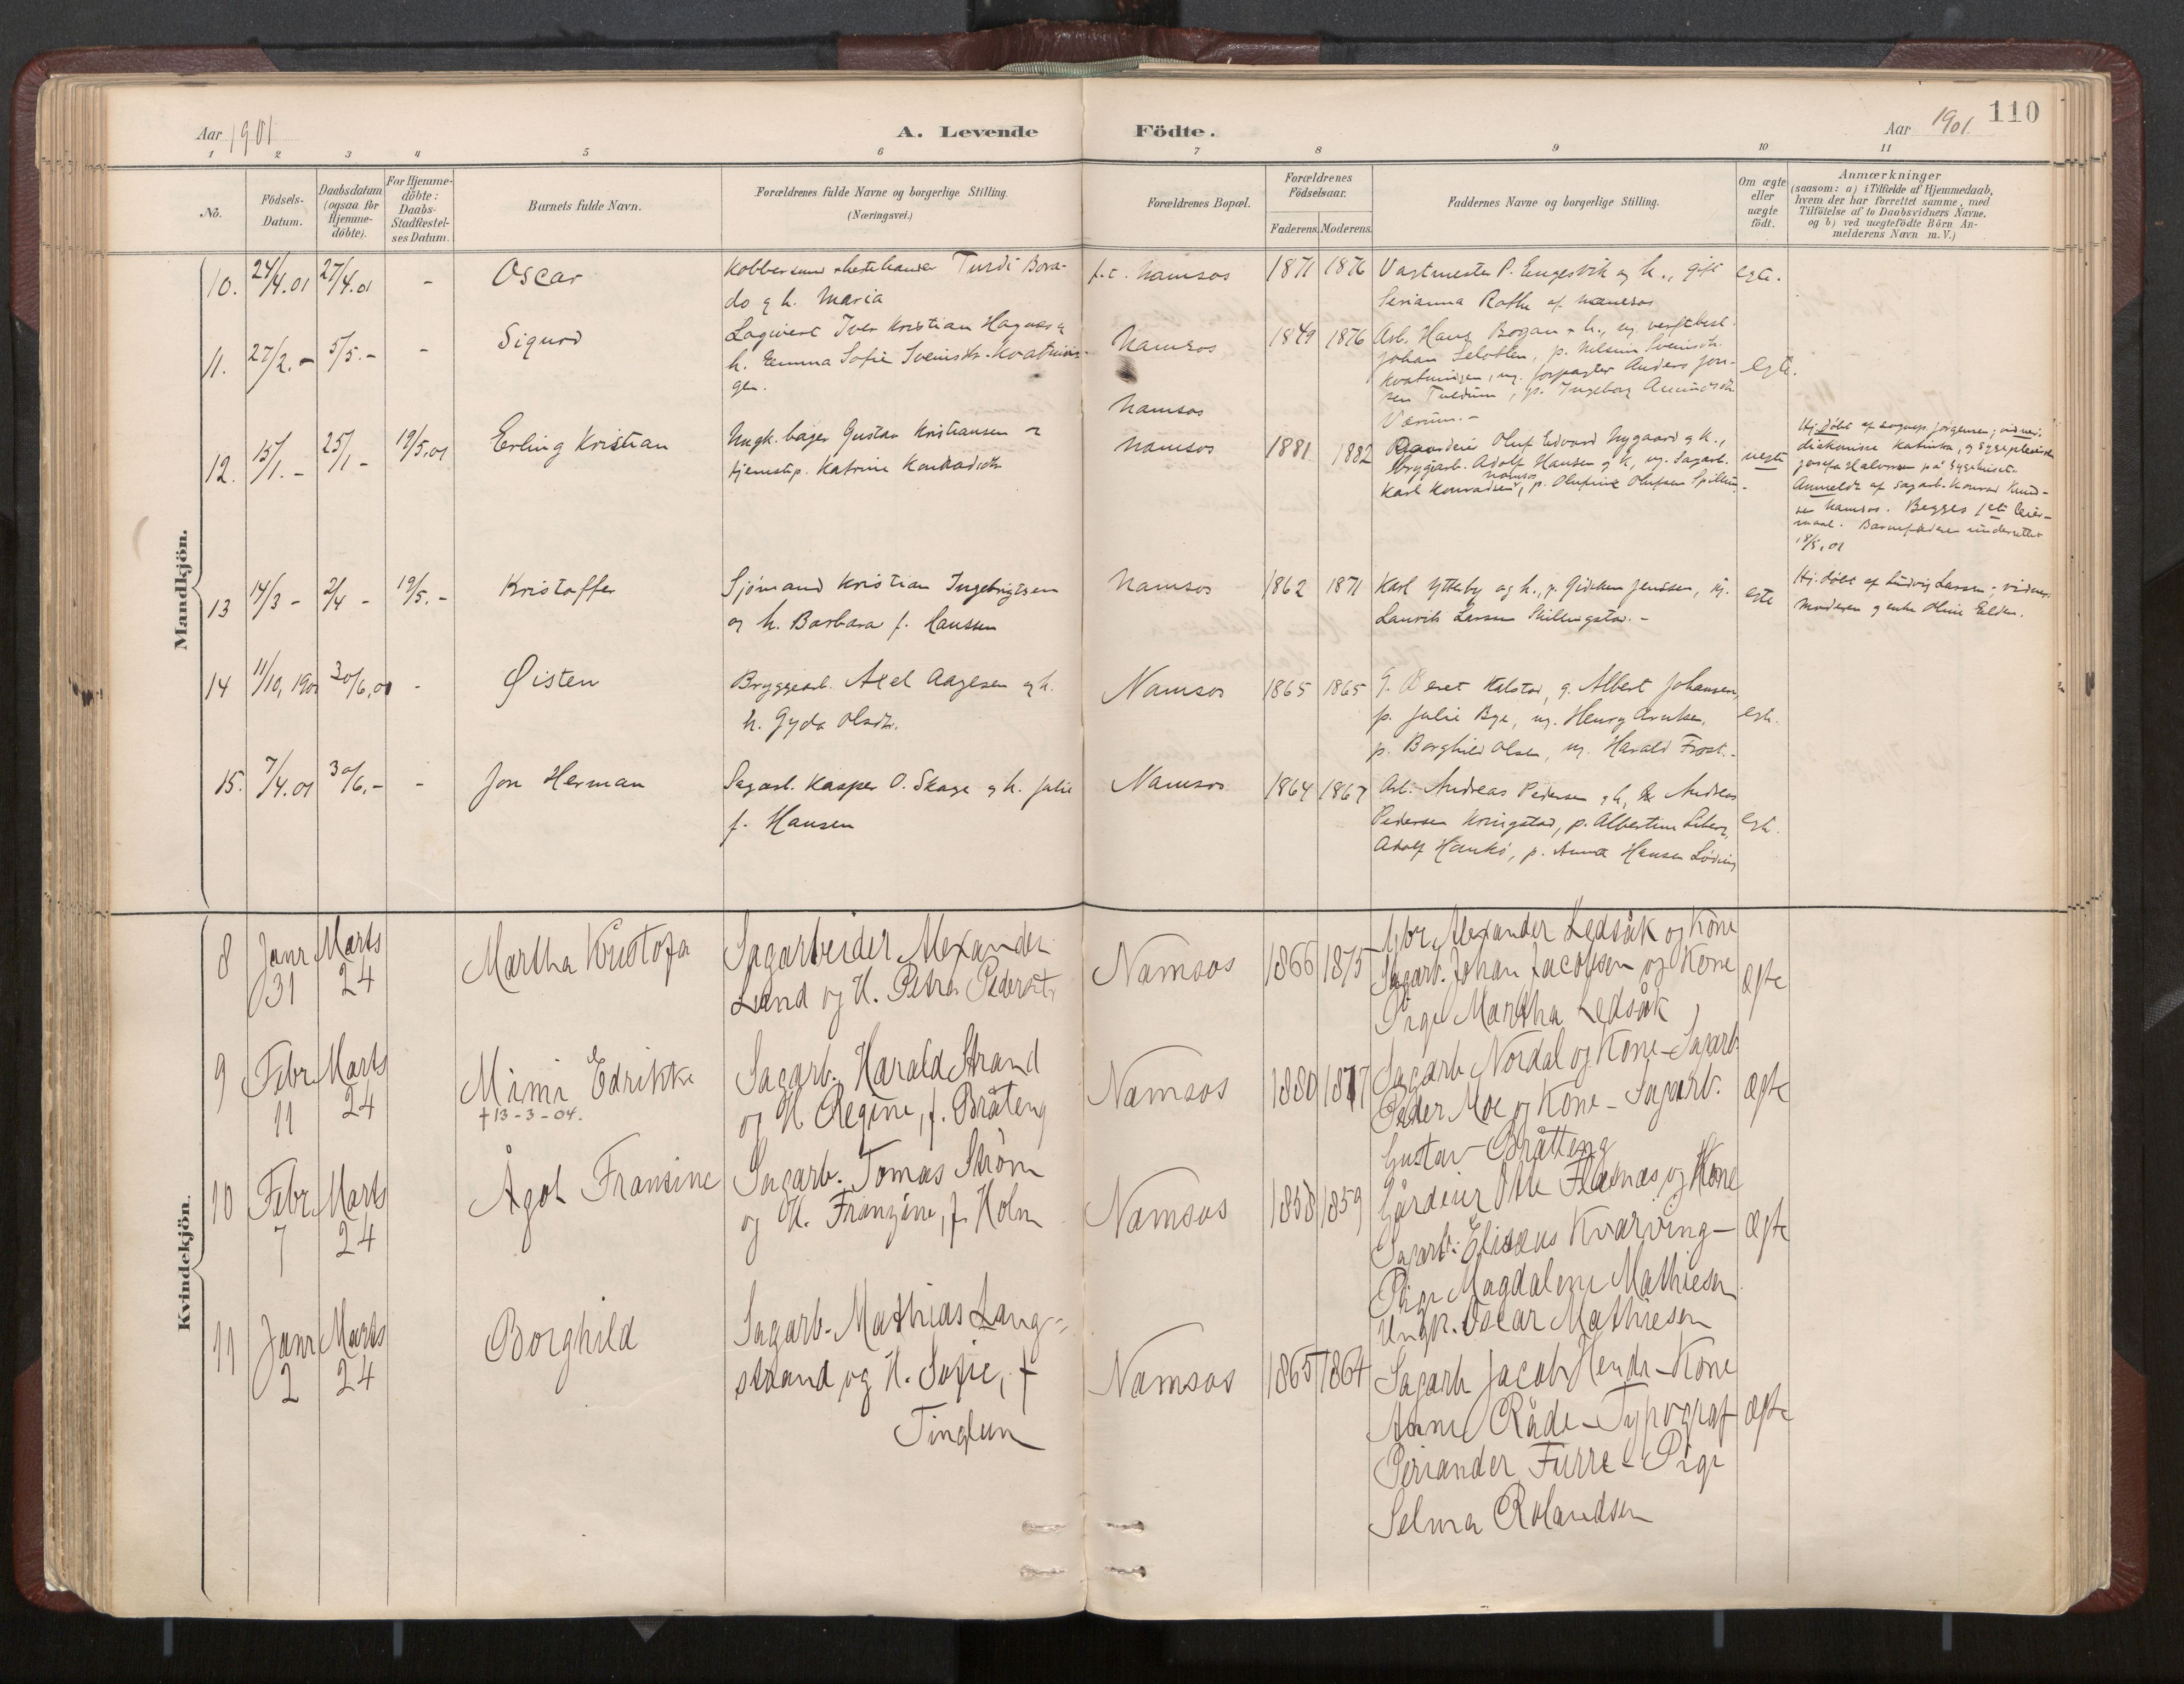 110
Aar 1901 A. Levende Födte. Aar 1901.
1 2 3 4 5 6 7 8 9 10 11
Nö. Födsels-Datum. Daabsdatum (ogsaa for Hjemme-döbte). For Hjemme-döbte: Daabs-Stadfæstel-ses Datum. Barnets fulde Navn. Forældrenes fulde Navne og borgerlige Stilling. (Næringsvei.) Forældrenes Bopæl. Forældrenes Födselsaar. Faderens. Moderens. Faddernes Navne og borgerlige Stilling. Om ægte eller uægte födt. Anmærkninger (saasom: a) i Tilfælde af Hjemmedaab, hvem der har forrettet samme, med Tilföielse af to Daabsvidners Navne, og b) ved uægtefödte Börn An-melderens Navn m. V.)
Mandkjön.
10. 24/4.01 27/4.01 - Oscar Turdi Bora-
do og h. Maria
f.t. Namsos 1871 1876 Vagtmester P. Engesvik og h., gift
Serianna Rothe af Namsos egte.
11. 27/2.- 5/5.- - Sigurd Iver Kristian
h. Emma Sofie
gen.
Namsos 1849 1876 Arb. Hans Bogan
Johan
Anders
Ingeborg
Værum.-
egte.
Namsos
12. 15/1.- 25/1- 19/5.01 Erling Kristian Ungk. bager Gustav Kristiansen og
tjenestep. Katrine Konradsdtr
Namsos 1881 1882 Oluf Edvard Nygaard og k.,
bryggearb. Adolf Hansen og k, ug. Sagarb.
Karl Konradsen, Namsos, p. Olufine Olufsen Spillum.-
uegte
Hj. døbt af sognep. Jørgensen; vidner:
diakonisse Katinka, og sygepleierske
Josefa Halvorsen på sygehuset.
Anmeldt af sagarb. Konrad Knud-
sen Namsos. Begges 1ste leier-
maal. Barnefaderen underrettet
18/5.01
13 14/3 - 2/4 - 19/5.- Kristoffer Sjømand Kristian Ingebrigtsen
og h. Barbara f. Hanssen
Namsos 1862 1871 Karl Ytterby og h., p. Jenssen, u.
Laurits Larsen Skillingstad.-
egte
Hj. døbt af Ludvig Larsen; vidner:
Moderen og enke Oline Elden.
14 11/10, 1900 30/6,01 - Øisten Bryggearb. Axel Aagesen og h.
h. Gyda Olsdtr.
Namsos 1865 1865 G. Beret Kalstad, g. Albert Johansen,
p. Julie Bye, ug. Henry Arntsen,
p. Borghild Olsen, ug. Harald Frost.-
egte.
15. 7/4.01 30/6.- - Jon Herman Sagarb. Kasper O. Skage og h. Julie
f. Hansen
Namsos 1864 1867 Arb. Andreas Pedersen og h, Andreas
Pedersen Kringstad, p. Albertine
Adolf Hankø, p. Anna Hansen Løding
egte.
Kvindekjön.
8 Janr 31 Marts 24 Martha Kristofa Sagarbeider Alexander
Lund og H. Petra Pedersdtr
Namsos 1866 1875 Arbr Alexander Ledsåk og Kone
Sagarb. Johan Jacobsen og Kone
Pige Martha Ledsåk
ægte
9 Febr 11 Marts 24 Mimi Edrikke
+ 13-3-04.
Sagarb. Harald Strand
og H. Regine, f. Bråteng
Namsos 1880 1877 Sagarb Nordal og Kone - Sagarb.
Peder Moe og Kone - Sagarb.
Gustav Bråtteng
ægte
10 Febr 7 Marts 24 Ågot Fransine Sagarb. Tomas Strøm
og H. Franzine, f. Holm
Namsos 1858 1859 Gårdeier Otte Flasnæs og Kone
Sagarb. Elisæus Kvarving -
Pige Magdalene Mathiesen
Ungk. Oscar Mathiesen
ægte
11 Janr 2 Marts 24 Borghild Sagarb. Mathias Lang-
strand og H. Sofie, f
Tinglum
Namsos 1865 1864 Sagarb Jacob Hendr - Kone
Anne Råde - Typograf
Periander Furre - Pige
Selma Rolandsen
ægte